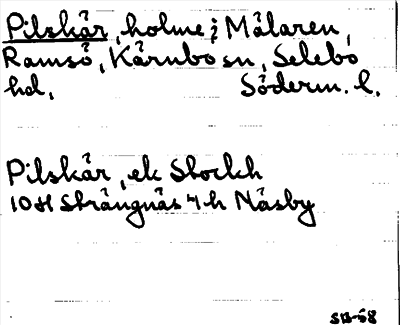 Pilskär, holme i Mälaren,
Ramsö, Kärnbo sn, Selebo
hd, Söderm. l.
Pilskär, ek Stockh
10H Strängnäs 4h Näsby
SB-68